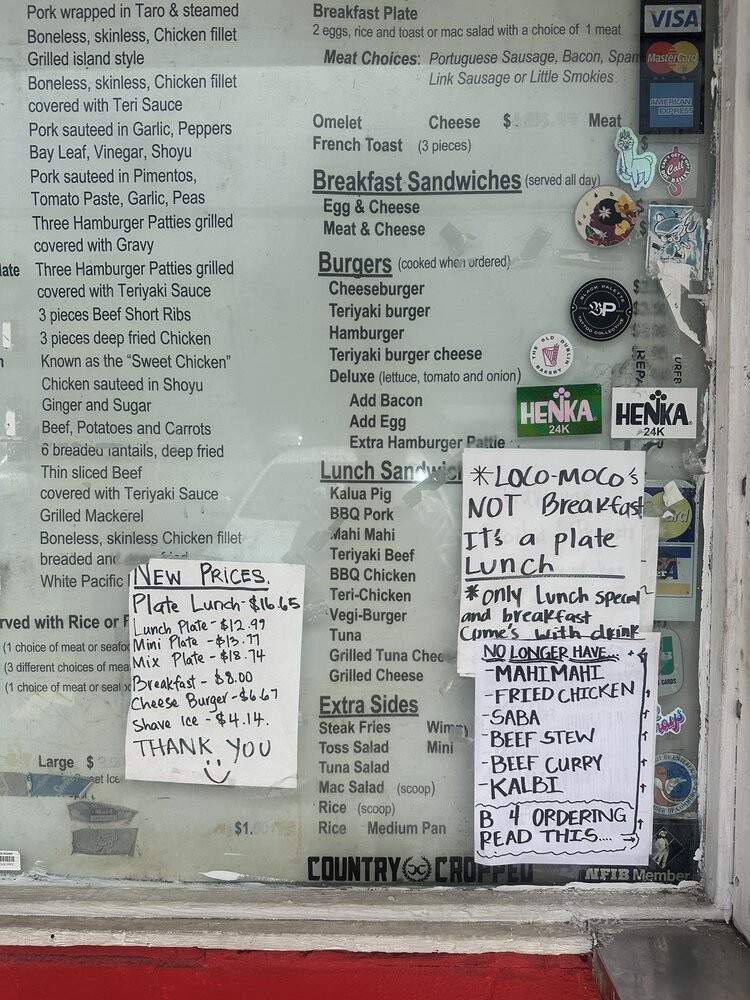 Pork wrapped in Taro & steamed
Boneless, skinless, Chicken fillet
Grilled island style
Boneless, skinless, Chicken fillet
covered with Teri Sauce
Pork sauteed in Garlic, Peppers
Bay Leaf, Vinegar, Shoyu
Pork sauteed in Pimentos,
Tomato Paste, Garlic, Peas
Three Hamburger Patties grilled
covered with Gravy
Three Hamburger Patties grilled
covered with Teriyaki Sauce
3 pieces Beef Short Ribs
3 pieces deep fried Chicken
Known as the “Sweet Chicken”
Chicken sauteed in Shoyu
Ginger and Sugar
Beef, Potatoes and Carrots
6 breaded fantails, deep fried
Thin sliced Beef
covered with Teriyaki Sauce
Grilled Mackerel
Boneless, skinless Chicken fillet
breaded and fried
White Pacific
rved with Rice or
(1 choice of meat or seafoo
(3 different choices of mea
(1 choice of meat or sea
Large $
$1.
NEW PRICES.
Plate Lunch - $16.65
Lunch Plate - $12.99
Mini Plate - $13.77
Mix Plate - $18.74
Breakfast - $8.00
Cheese Burger - $6.67
Shave Ice - $4.14.
THANK YOU
Breakfast Plate
2 eggs, rice and toast or mac salad with a choice of 1 meat
Meat Choices: Portuguese Sausage, Bacon, Spam
Link Sausage or Little Smokies
Omelet Cheese $ Meat
French Toast (3 pieces)
Breakfast Sandwiches (served all day)
Egg & Cheese
Meat & Cheese
Burgers (cooked when ordered)
Cheeseburger
Teriyaki burger
Hamburger
Teriyaki burger cheese
Deluxe (lettuce, tomato and onion)
Add Bacon
Add Egg
Extra Hamburger Pattie
Lunch Sandwic
Kalua Pig
BBQ Pork
Mahi Mahi
Teriyaki Beef
BBQ Chicken
Teri-Chicken
Vegi-Burger
Tuna
Grilled Tuna Chee
Grilled Cheese
Extra Sides
Steak Fries
Toss Salad Mini
Tuna Salad
Mac Salad (scoop)
Rice (scoop)
Rice Medium Pan
COUNTRY CROPPED
VISA
MasterCard
AMERICAN
EXPRESS
BLACK PALETTE
BP
TATTOO COLLECTIVE
THE OLD DUBLIN
BAKERY
HENKA
24K
HENKA
24K
* LOCO-MOCO's
NOT Breakfast
It's a plate
Lunch
* only lunch special
and breakfast
come's with drink
NO LONGER HAVE...
- MAHIMAHI
- FRIED CHICKEN
- SABA
- BEEF STEW
- BEEF CURRY
- KALBI
B 4 ORDERING
READ THIS....
CARDS
NFIB Member